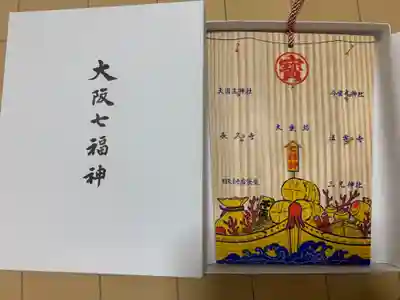 大阪七福神
寳
大国主神社
今宮戎神社
大乗坊
長久寺
法案寺
三光神社